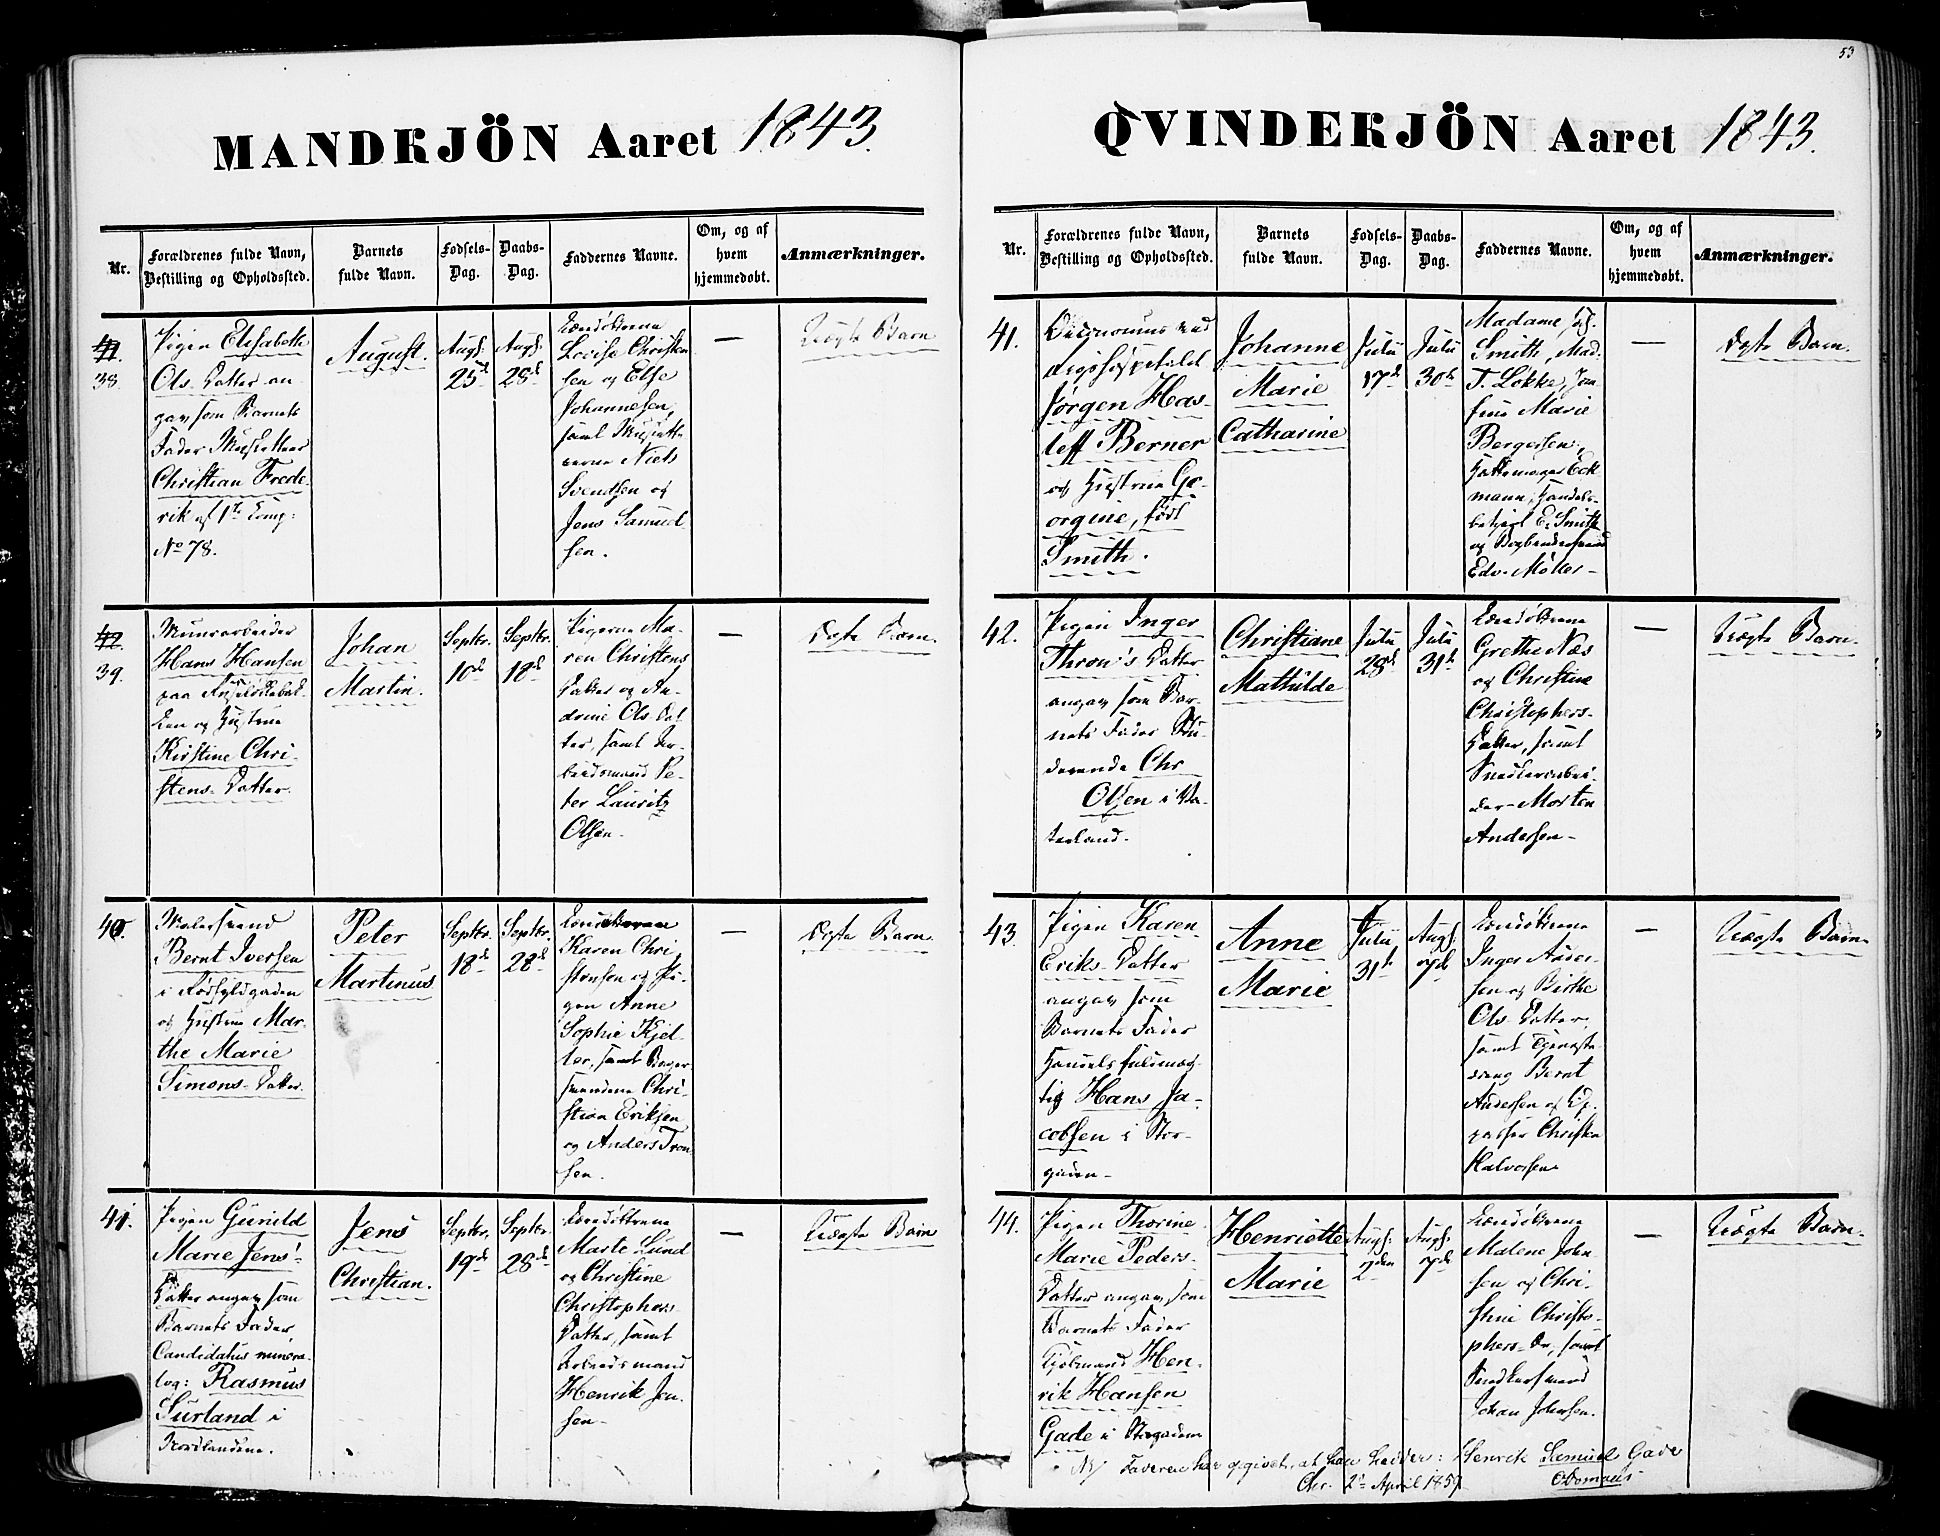 53
MANDKJÖN Aaret 1843.
Nr.
Forældrenes fulde Navn,
Bestilling og Opholdssted.
Barnets
fulde Navn.
Fødsels-
Dag.
Daabs-
Dag.
Faddernes Navne.
Om, og af
hvem
hjemmedøbt.
Anmærkninger.
38.
Pigen Elisabeth
Ols. Datter an-
gav, som Barnets
Fader Musketteer
Christian Frede-
rik af 1te Comp:
No 78.
August.
Augs.
25d
Augs.
28d
Lovise Christen
sen og Else
Johannesen,
samt Muskette
rerne Niels
Svendsen og
Jens Samuel
sen.
—
Uægte Barn
42.
39.
Muurarbeider
Hans Hansen
paa
og Hustrue
Kirstine Chri-
stens-Datter.
Johan
Martin.
Septbr.
10d
Septbr.
18d
Pigerne Ma-
ren Christens
Datter og An-
drine Ols Dat
ter, samt Ar-
beidsmand Pe-
ter Lauritz
Olsen.
—
Ægte Barn.
40.
Malersvend
Bernt Iversen
i Rødfyldgaden
og Hustrue Mar-
the Marie
Simons-Datter.
Peter
Martinus
Septbr.
18d
Septbr.
28d
Karen Chri-
stensen og Pi-
gen Anne
Sophie Kjel-
ler, samt Bager
svendene Chri-
stian Eriksen
og Anders Tron
sen.
—
Ægte Barn.
41.
Pigen Gunild
Marie Jens'-
Datter angav som
Barnets Fader,
Candidatus minera-
log: Rasmus
Surland i
Nordlandene.
Jens
Christian.
Septbr.
19d
Septbr.
28d
Marte Lund
og Christine
Christophers
Datter, samt
Arbeidsmand
Henrik Jen-
sen.
—
Uægte Barn
QVINDEKJÖN Aaret 1843.
Nr.
Forældrenes fulde Navn,
Bestilling og Opholdssted.
Barnets
fulde Navn.
Fødsels-
Dag.
Daabs-
Dag.
Faddernes Navne.
Om, og af
hvem
hjemmedøbt.
Anmærkninger.
41.
Jørgen Has-
leff Berner
og Hustrue Ge-
orgine, født
Smith.
Johanne
Marie
Catharine
Juli
17d
Juli
30te
Madame
Smith, Mad.
T. Løkke, Jom
frue Marie
Bergersen,
Hattemager Eck
mann, Handels-
betjent E. Smith
og Bogbindersvend
Edv. Møller
—
Ægte Barn.
42.
Pigen Inger
Thron's Datter
angav som Bar-
nets Fader Stu-
derende Chr
Olsen i Va-
terland.
Christiane
Mathilde
Juli
28d
Juli
31te
Grethe Næs
og Christine
Christophers-
Datter, samt
Snedkerarbei-
der Morten
Andersen
—
Uægte Barn.
43.
Pigen Karen
Eriks-Datter
angav som
Barnets Fader
Handelsfuldmæg-
tig Hans Ja-
cobsen i Stor-
gaden
Anne
Marie
Juli
31te
Augs.
7d
Inger Ander-
sen og Birthe
Ols-Datter,
samt Tjeneste-
dreng Bernt
Andersen og Op-
passer Christian
Halvorsen
—
Uægte Barn.
44.
Pigen Thorine
Marie Peders-
Datter angav, som
Barnets Fader
Henrik Hansen
Gade i Storgaden
Henriette
Marie
Augs.
2den
Augs.
7d
Malene John
sen og Chri-
stine Christo-
phers-Dr, samt
Snedkersvend
Johan Johnsen.
—
Uægte Barn.
Faderen har opgivet, at han hedder: Henrik Samuel Gade
Chr. 2d April 1859 O. Domaas